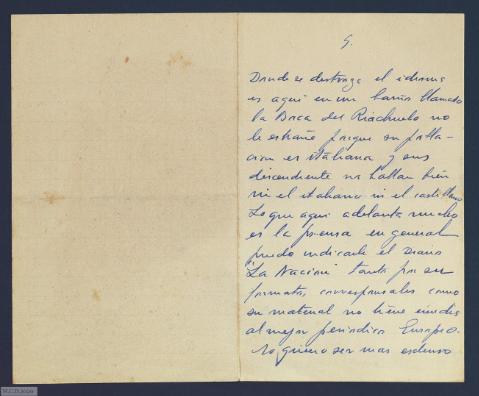 5.
Donde se destroza el idioma
es aqui en un barrio llamado
la Boca del Riachuelo no
le estrañe porque su pobla-
cion es italiana y sus
descendiente no hablan bien
ni el italiano ni el castillano
Lo que aqui adelanta mucho
es la prensa en general
puedo indicarle el Diario
"La Nacion" tanto por su
formato, corresponsales como
su material no tiene envidia
al mejor periodico Europeo.
No quiero ser mas estenso